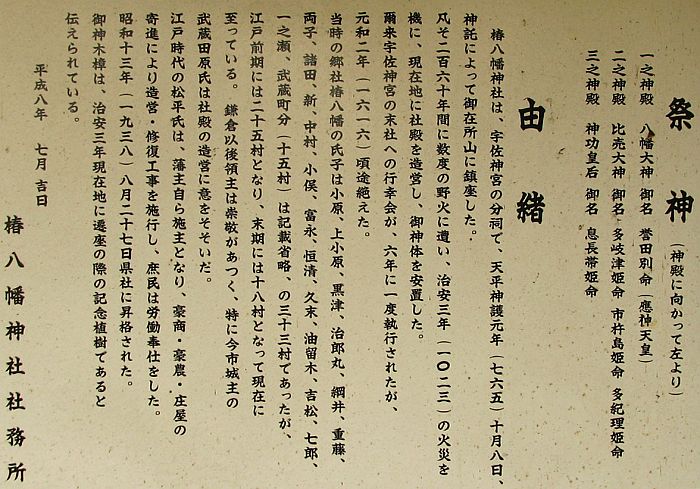 祭神（神殿に向かって左より）
一之神殿　八幡大神　御名　誉田別命（應神天皇）
二之神殿　比売大神　御名　多岐津姫命　市杵島姫命　多紀理姫命
三之神殿　神功皇后　御名　息長帯姫命
由緒
椿八幡神社は、宇佐神宮の分祠で、天平神護元年（七六五）十月八日、
神託によって御在所山に鎮座した。
凡そ二百六十年間に数度の野火に遭い、治安三年（一〇二三）の火災を
機に、現在地に社殿を造営し、御神体を安置した。
爾来宇佐神宮の末社への行幸会が、六年に一度執行されたが、
元和二年（一六一六）頃途絶えた。
当時の郷社椿八幡の氏子は小原、上小原、黒津、治郎丸、綱井、重藤、
両子、諸田、新、中村、小俣、富永、恒清、久末、油留木、吉松、七郎、
一之瀬、武蔵町分（十五村）は記載省略、の三十三村であったが、
江戸前期には二十五村となり、末期には十八村となって現在に
至っている。　鎌倉以後領主は崇敬があつく、特に今市城主の
武蔵田原氏は社殿の造営に意をそそいだ。
江戸時代の松平氏は、藩主自ら施主となり、豪商・豪農・庄屋の
寄進により造営・修復工事を施行し、庶民は労働奉仕をした。
昭和十三年（一九三八）八月二十七日県社に昇格された。
御神木樟は、治安三年現在地に遷座の際の記念植樹であると
伝えられている。
平成八年　七月　吉日
椿八幡神社社務所